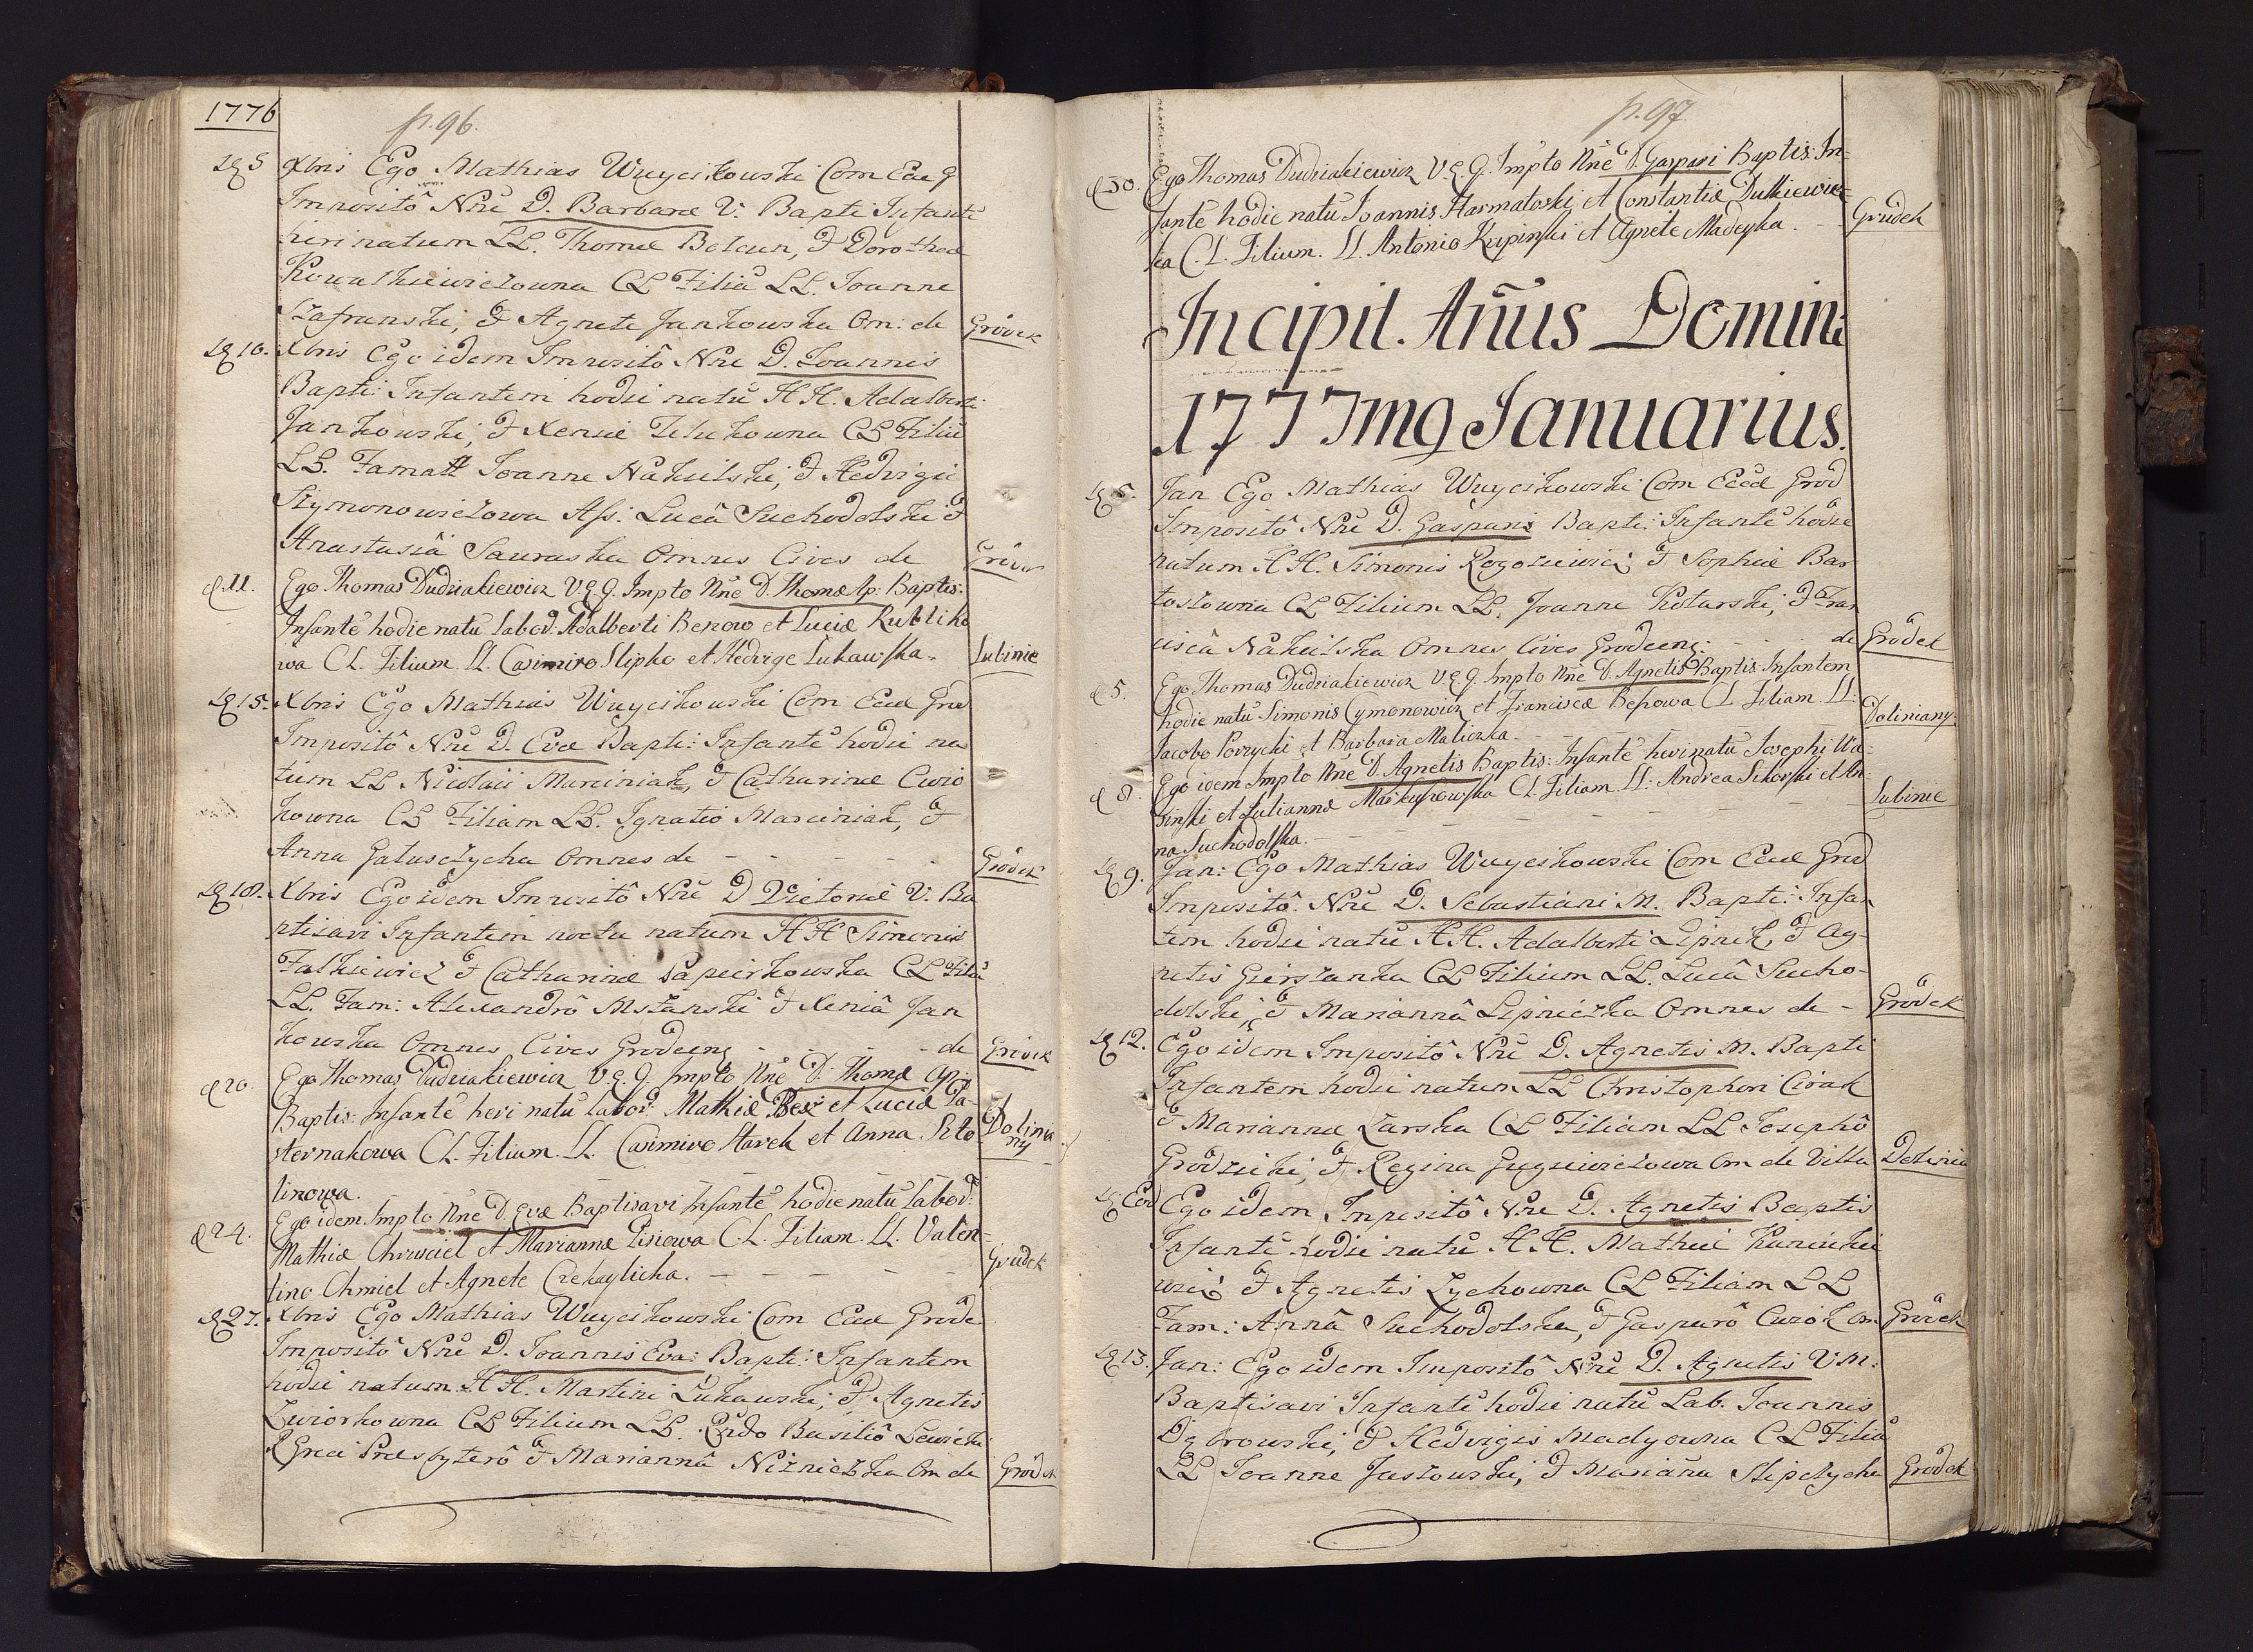 1776
p. 96.
5 Xbris Ego Mathias Wuycikowski Com Ecae G
Impositô Nñe D. Barbarae V. Bapti Infantē
heri natum LL. Thomae Bolcun, & Dorotheae
Kowalkiewiczowna CL Filiā LL. Joanne
Szafranski, & Agnete Jankowska Om: de Grodek
10. Xbris Ego idem Impositô Nñe D. Joannis
Bapti: Infantem hodie natū HH. Adalberti
Jankowski, & Xeniae CL Filiū
LL. Famatt Joanne Nakielski, & Hedvigie
Szymonowiczowa Ass: Lucâ Suchodolski &
Anastasiâ Sauraska Omnes Cives de Grodek
d 11. Ego Thomas Dudziakiewicz V.E.G. Impto Nñe D. Thomae Ap: Baptis:
Infantē hodie natū Labor: Adalberti Benow et Luciae Rubliko
wa C.L. Filium. LL. Casimiro Slipko et Hedvige Lukawska. Lubinie
15. Xbris Ego Mathias Wuycikowski Com Ecae Grod
Impositô Nñe D. Evae Bapti: Infantē hodie na
tum LL Nicolaii Marciniak, & Catharinae Cwio
kowna CL Filiam LL. Ignatio Marciniak, &
Anna Galuszczycha Omnes de - - - - - Grodek
18. Xbris Ego idem Impositô Nñe D Victoriae V. Ba
ptisavi Infantem noctu natum HH Simonis
Falkiewicz & Catharinae Papcirkowska CL Filiā
LL. Fam: Alexandrô Mszanski & Xeniâ Jan
kowska Omnes Cives Grodecens - - - de Grodek
d 20. Ego Thomas Dudziakiewicz V.E.G. Impto Nñe D. Thomae Ap:
Baptis: Infantē heri natū Labor: Mathiae Bey et Luciae Pa-
sternakowa C.L. Filium. LL. Casimiro Storek et Anna Szto Dolinia
ny
linowa. - - - -
d 24. Ego idem Impto Nñe D. Evae Baptisavi Infantē hodie natū Labor:
Mathiae Chrusciel et Mariannae Pisiowa C.L. Filiam. LL. Valen-
tino Chmiel et Agnete Czekaylicha. - - - - - Grudek
27. Xbris Ego Mathias Wuycikowski Com Ecae Grode
Impositô Nñe D. Joannis Eva: Bapti: Infantem
hodie natum HH. Martini Lukawski, & Agnetis
Zwiorkowna CL Filium LL. Rndo Basiliô Lewicki
R Graeci Praesbyterô & Mariannâ Nizniczka Om de Grodek
p. 97.
d 30. Ego Thomas Dudziakiewicz V.E.G. Impto Nñe D. Gaspari Baptis: In-
fantē hodie natū Joannis Harmatoski et Constantiae Dutkiewic-
ka C.L. Filium. LL. Antonio Krupinski et Agnete Madeyka. - Grudek
Incipit. Añus Domini
1777mg Januarius.
5. Jan Ego Mathias Wuycikowski Com Ecae Grod
Impositô Nñe D. Gasparis Bapti: Infantē hodie
natum HH. Simonis Rogoziewicz & Sophiae Bar
toszowna CL Filium LL. Joanne Kotarski, & Fran
ciscâ Nakielska Omnes Cives Grodecens: - - - de Grodek
d 5. Ego Thomas Dudziakiewicz V.E.G. Impto Nñe D. Agnetis Baptis: Infantem
hodie natū Simonis Cymonowicz et Franciscae Besowa C.L. Filiam. LL:
Jacobo Porzycki et Barbara Maliczka. - - - Doliniany
d 8. Ego idem Impto Nñe D. Agnetis Baptis: Infantē heri natū Josephi Wa-
sinski et Julianna Markuszowska C.L. Filiam LL: Andrea Sikorski et An-
na Suchodolska. - - - - Lubinie
9. Jan: Ego Mathias Wuycikowski Com Ecae Grod
Impositô Nñe D. Sebastiani M. Bapti: Infan
tem hodie natū HH. Adalberti Lipnik, & Ag-
netis Gierszanka CL Filium LL. Lucâ Sucho-
dolski, & Mariannâ Lipniczka Omnes de - Grodek
12. Ego idem Impositô Nñe D. Agnetis M. Bapti
Infantem hodie natum LL Christophori Cwiak
& Mariannae Zarska CL Filiam LL Josephô
Grodzicki, & Regina Gugsiewiczowa Om de Villa Dolinia
Eod Ego idem Impositô Nñe D. Agnetis Baptis
Infantē hodie natū HH. Mathiae
wicz & Agnetis Zychowna CL Filiam LL
Fam: Annâ Suchodolska, & Gasparô Cwiok Om Grodek
13. Jan: Ego idem Impositô Nñe D. Agnetis V M:
Baptisavi Infantē hodie natū Lab. Joannis
Dąbrowski, & Hedvigis Madyowna CL Filiā
LL Joanne Jaszowski, & Mariâna Slipczycha Grodek